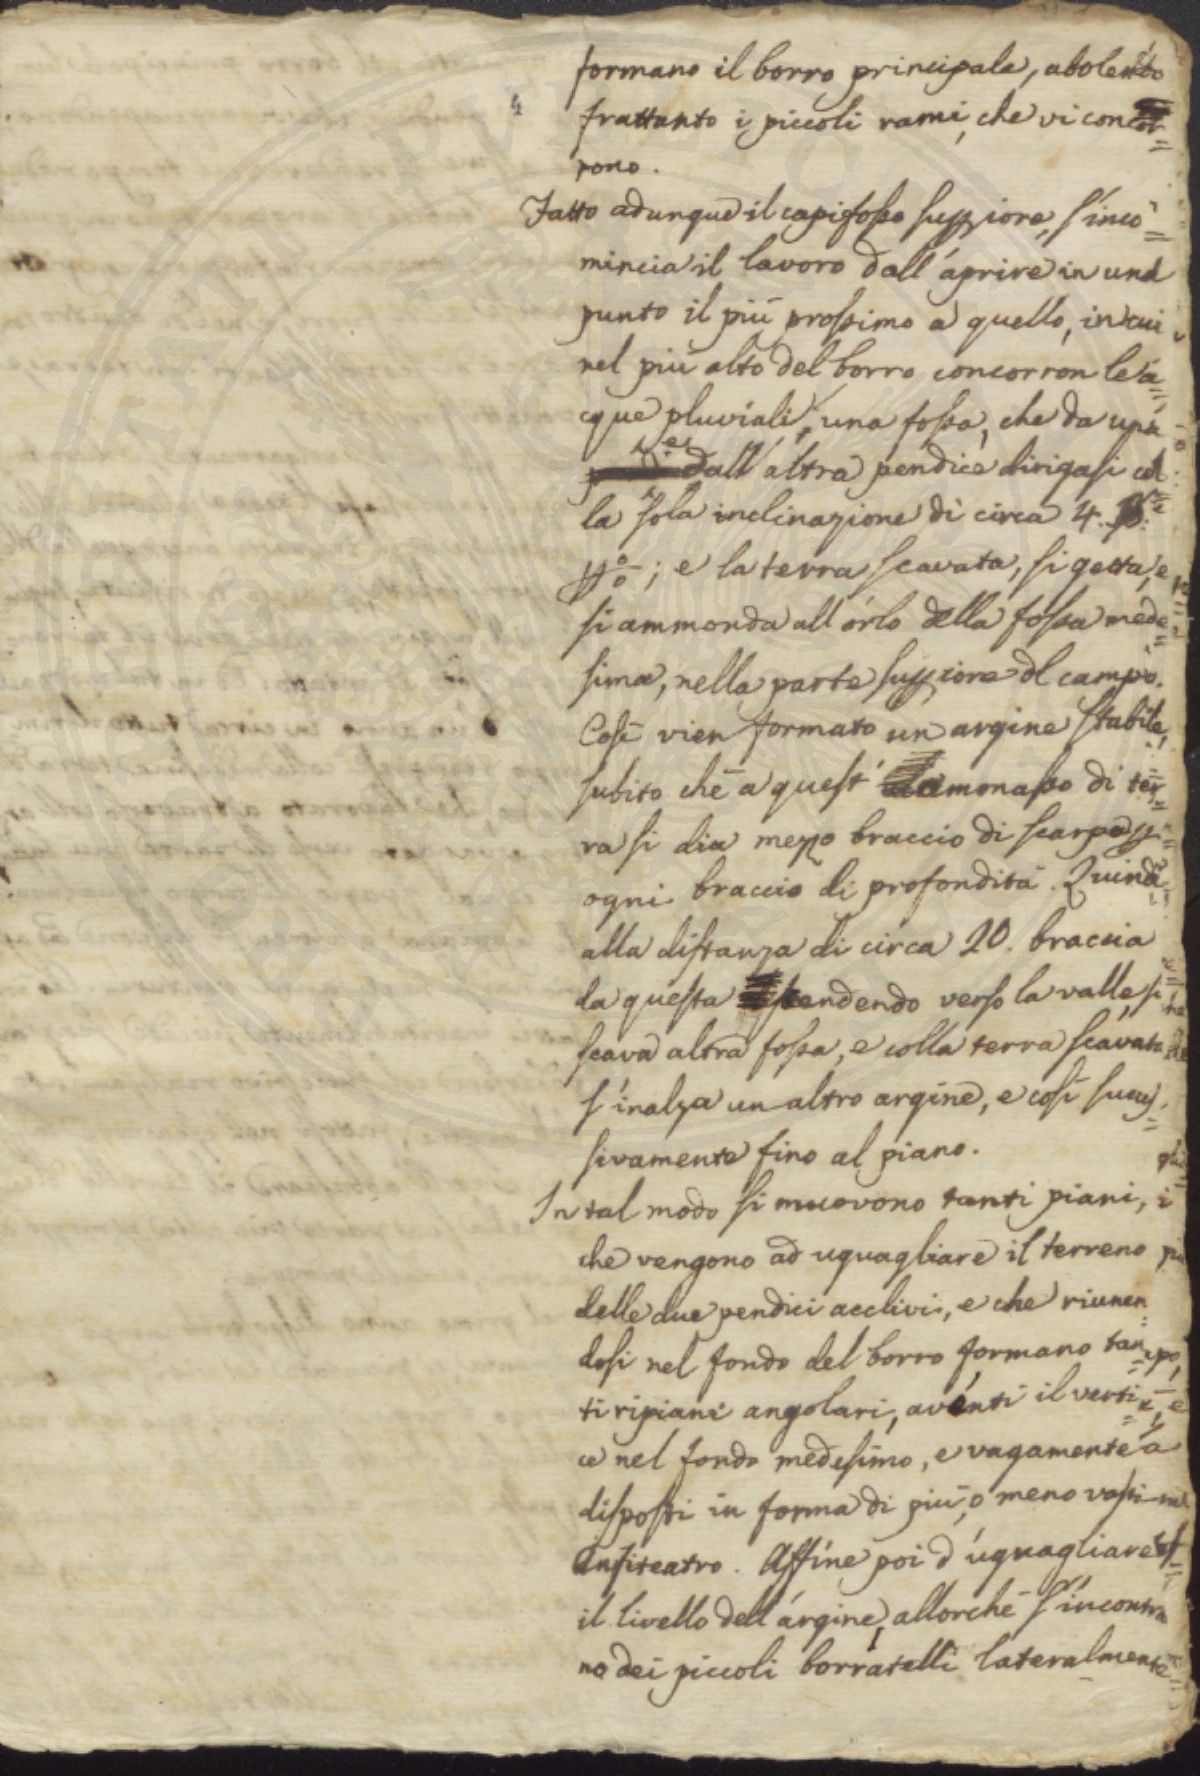 formano il borro principale, abolendo
4
frattanto i piccoli rami, che vi concor=
rono.
Fatto adunque il capifosso supiore, s'inco=
mincia il lavoro dall'aprire in un
punto il più prossimo a quello, in cui
nel più alto del borro concorron le a=
cque pluviali, una fossa, che da una,
e dall'altra pendice dirigasi col=
la sola inclinazione di circa 4.
p %; e la terra scavata, si getta, e
si ammonda all'orlo della fossa mede=
sima, nella parte supiore del campo.
Così vien formato un argine stabile,
subito chè a quest' ammonasso di ter=
ra si dia mezzo braccio di scarpa p
ogni braccio di profondità. Quindi
alla distanza di circa 20. braccia
da questa scendendo verso la valle, si
scava altra fossa, e colla terra scavata
s'inalza un altro argine, e così succes=
sivamente fino al piano.
In tal modo si muovono tanti piani,
che vengono ad uguagliare il terreno
delle due pendici acclivi, e che riunen=
dosi nel fondo del borro formano tan=
ti ripiani angolari, aventi il verti=
ce nel fondo medesimo, e vagamente
disposti in forma di più, o meno vasti
Anfiteatro. Affine poi d'uguagliare
il livello dell'argine, allorchè s'incontra
no dei piccoli borratelli lateralmente